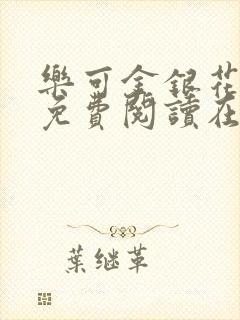 樂可金銀花
免費閱讀在
葉继革